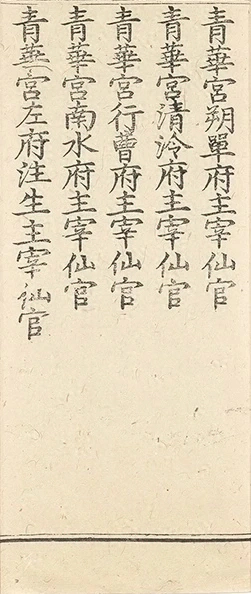 青華宮朔單府主宰仙官
青華宮清泠府主宰仙官
青華宮行曹府主宰仙官
青華宮南水府主宰仙官
青華宮左府注生主宰仙官